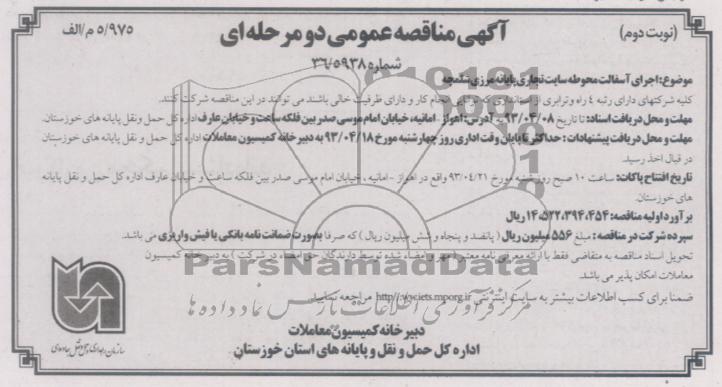 (نوبت دوم)
آگهی مناقصه عمومی دو مرحله ای
۵/۹۷۵ م/الف
شماره ۳۶/۵۹۳۸
موضوع: اجرای آسفالت محوطه سایت تجاری پایانه مرزی شلمچه
کلیه شرکتهای دارای رتبه ۴ راه و ترابری از استانداری که توانایی انجام کار و دارای ظرفیت خالی باشند می توانند در این مناقصه شرکت کنند.
مهلت و محل دریافت اسناد: تا تاریخ ۹۳/۰۴/۰۸ به آدرس: اهواز - امانیه، خیابان امام موسی صدر بین فلکه ساعت و خیابان عارف اداره کل حمل و نقل پایانه های خوزستان.
مهلت و محل دریافت پیشنهادات: حداکثر تا پایان وقت اداری روز چهارشنبه مورخ ۹۳/۰۴/۱۸ به دبیرخانه کمیسیون معاملات اداره کل حمل و نقل پایانه های خوزستان
در قبال اخذ رسید.
تاریخ افتتاح پاکات: ساعت ۱۰ صبح روز شنبه مورخ ۹۳/۰۴/۲۱ واقع در اهواز - امانیه، خیابان امام موسی صدر بین فلکه ساعت و خیابان عارف اداره کل حمل و نقل پایانه
های خوزستان.
برآورد اولیه مناقصه: ۱۴,۵۲۲,۳۹۴,۴۵۴ ریال
سپرده شرکت در مناقصه: مبلغ ۵۵۶ میلیون ریال (پانصد و پنجاه و شش میلیون ریال) که صرفا بصورت ضمانت نامه بانکی یا فیش واریزی می باشد.
تحویل اسناد مناقصه به متقاضی فقط با ارائه معرفی نامه معتبر (مهر و امضاء شده توسط دارندگان حق امضاء در شرکت) به دبیرخانه کمیسیون
معاملات امکان پذیر می باشد.
ضمنا برای کسب اطلاعات بیشتر به سایت اینترنتی http://www.iets.mporg.ir مراجعه نمایید.
دبیرخانه کمیسیون معاملات
اداره کل حمل و نقل و پایانه های استان خوزستان
سازمان راهداری و حمل و نقل جاده ای
ParsNamadData
مرکز فرآوری اطلاعات پارس نماد داده ها